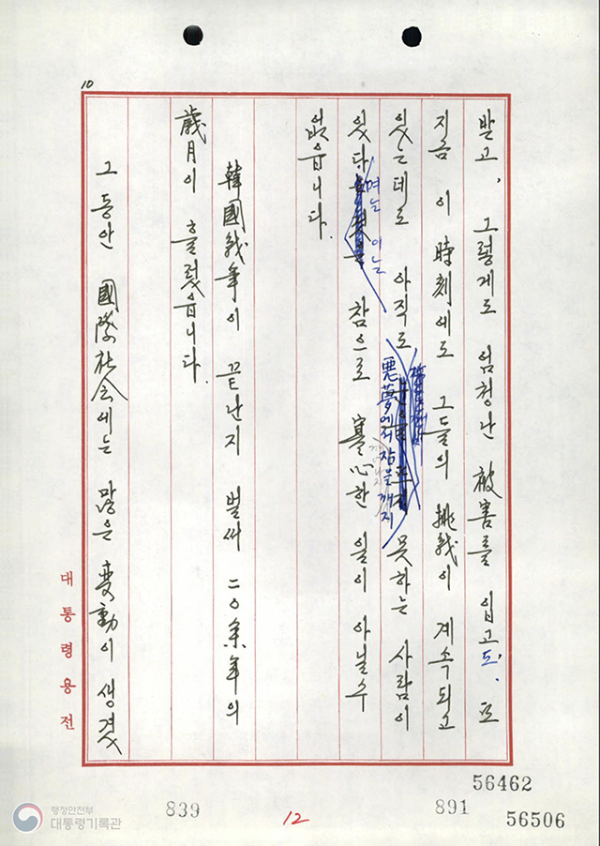 10
받고, 그렇게도 엄청난 被害를 입고도, 또
지금 이 時刻에도 그들의 挑戰이 계속되고
있는데도 아직도 悪夢에서 잠을 깨지 못하는 사람이
있다며는 이는 참으로 寒心한 일이 아닐수
없읍니다.
韓國戰争이 끝난지 벌써 二０余年의
歲月이 흘렀읍니다.
그 동안 國際社会에는 많은 変動이 생겼
대통령용전
56462
839
12
891
56506
행정안전부
대통령기록관